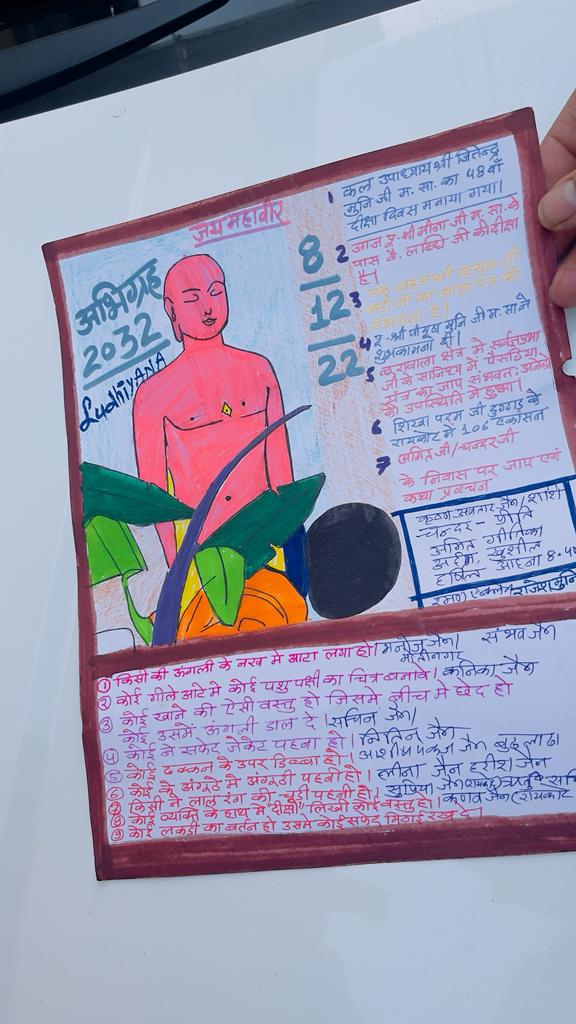 जय महावीर
अभिग्रह
2032
LudhiYANA
8
12
22
1 कल उपाध्याय श्री जितेन्द्र
मुनि जी म. सा. का 48वाँ
दीक्षा दिवस मनाया गया।
2 आज पू. श्री मीना जी म. सा. के
पास वै. लाब्धि जी की दीक्षा
है।
3
संभावना है।
4 पू. श्री पीयूष मुनि जी म. सा ने
शुभकामना दी।
5 क्षेत्र में
जी के सानिध्य में पैंसठिया
यंत्र का जाप संभवतः
की उपस्थिति में हुआ।
6 शिखा परम जी दुग्गड़ के
रायकोट में 106 एकासन
7 अमित जी/चन्दर जी
के निवास पर जाप एवं
कथा प्रवचन
कृष्ण अवतार जैन/शशि
चन्दर - प्रीति
अमित, गीतिका
खुशील
हर्षिल आहना 8.45
① किसी की ऊंगली के नख मे आटा लगा हो। मनोज जैन। संभव जैन
② कोई गीले आटे मे कोई पशु पक्षी का चित्र बनावे। कनिका जैन
③ कोई खाने की ऐसी वस्तु हो जिसमे बीच मे छेद हो
कोई उसमें ऊंगली डाल दे। सचिन जैन।
④ कोई ने सफेद जेकेट पहना हो। नितिन जैन
⑤ कोई ढक्कन के उपर डिब्बा हो। जैन बुढलाढा
⑥ कोई के अंगूठे मे अंगूठी पहनी हो। लीना जैन हरीश जैन
⑦ किसी ने लाल रंग की चूड़ी पहनी हो। सुप्रिया जैन
⑧ कोई व्यक्ति के हाथ मे "दीक्षा" लिखी कोई वस्तु हो। कणव जैन (रायकोट
⑨ कोई लकड़ी का बर्तन हो उसमे कोई सफेद मिठाई रख दे।